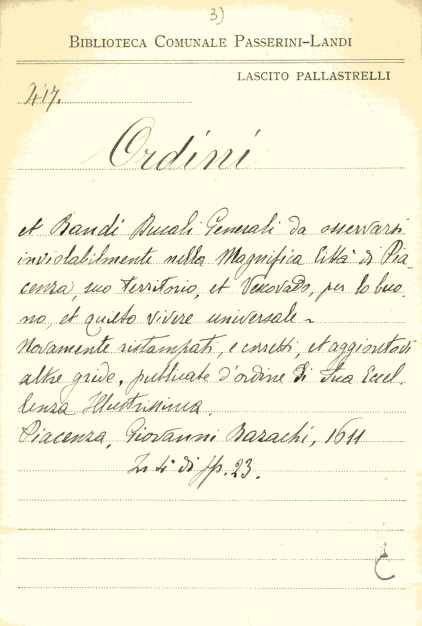 3)
BIBLIOTECA COMUNALE PASSERINI-LANDI
LASCITO PALLASTRELLI
417.
Ordini
et Bandi Ducali Generali da osservarsi
inviolabilmente nella Magnifica Città di Pia-
cenza, suo Territorio, et Vescovado, per lo buo-
no, et quieto vivere universale -
Novamente ristampati, e corretti, et aggiontovi
altre gride, publicate d'ordine di Sua Eccel-
lenza Illustrissima.
Piacenza, Giovanni Bazachi, 1611
In 4° di pp. 23.